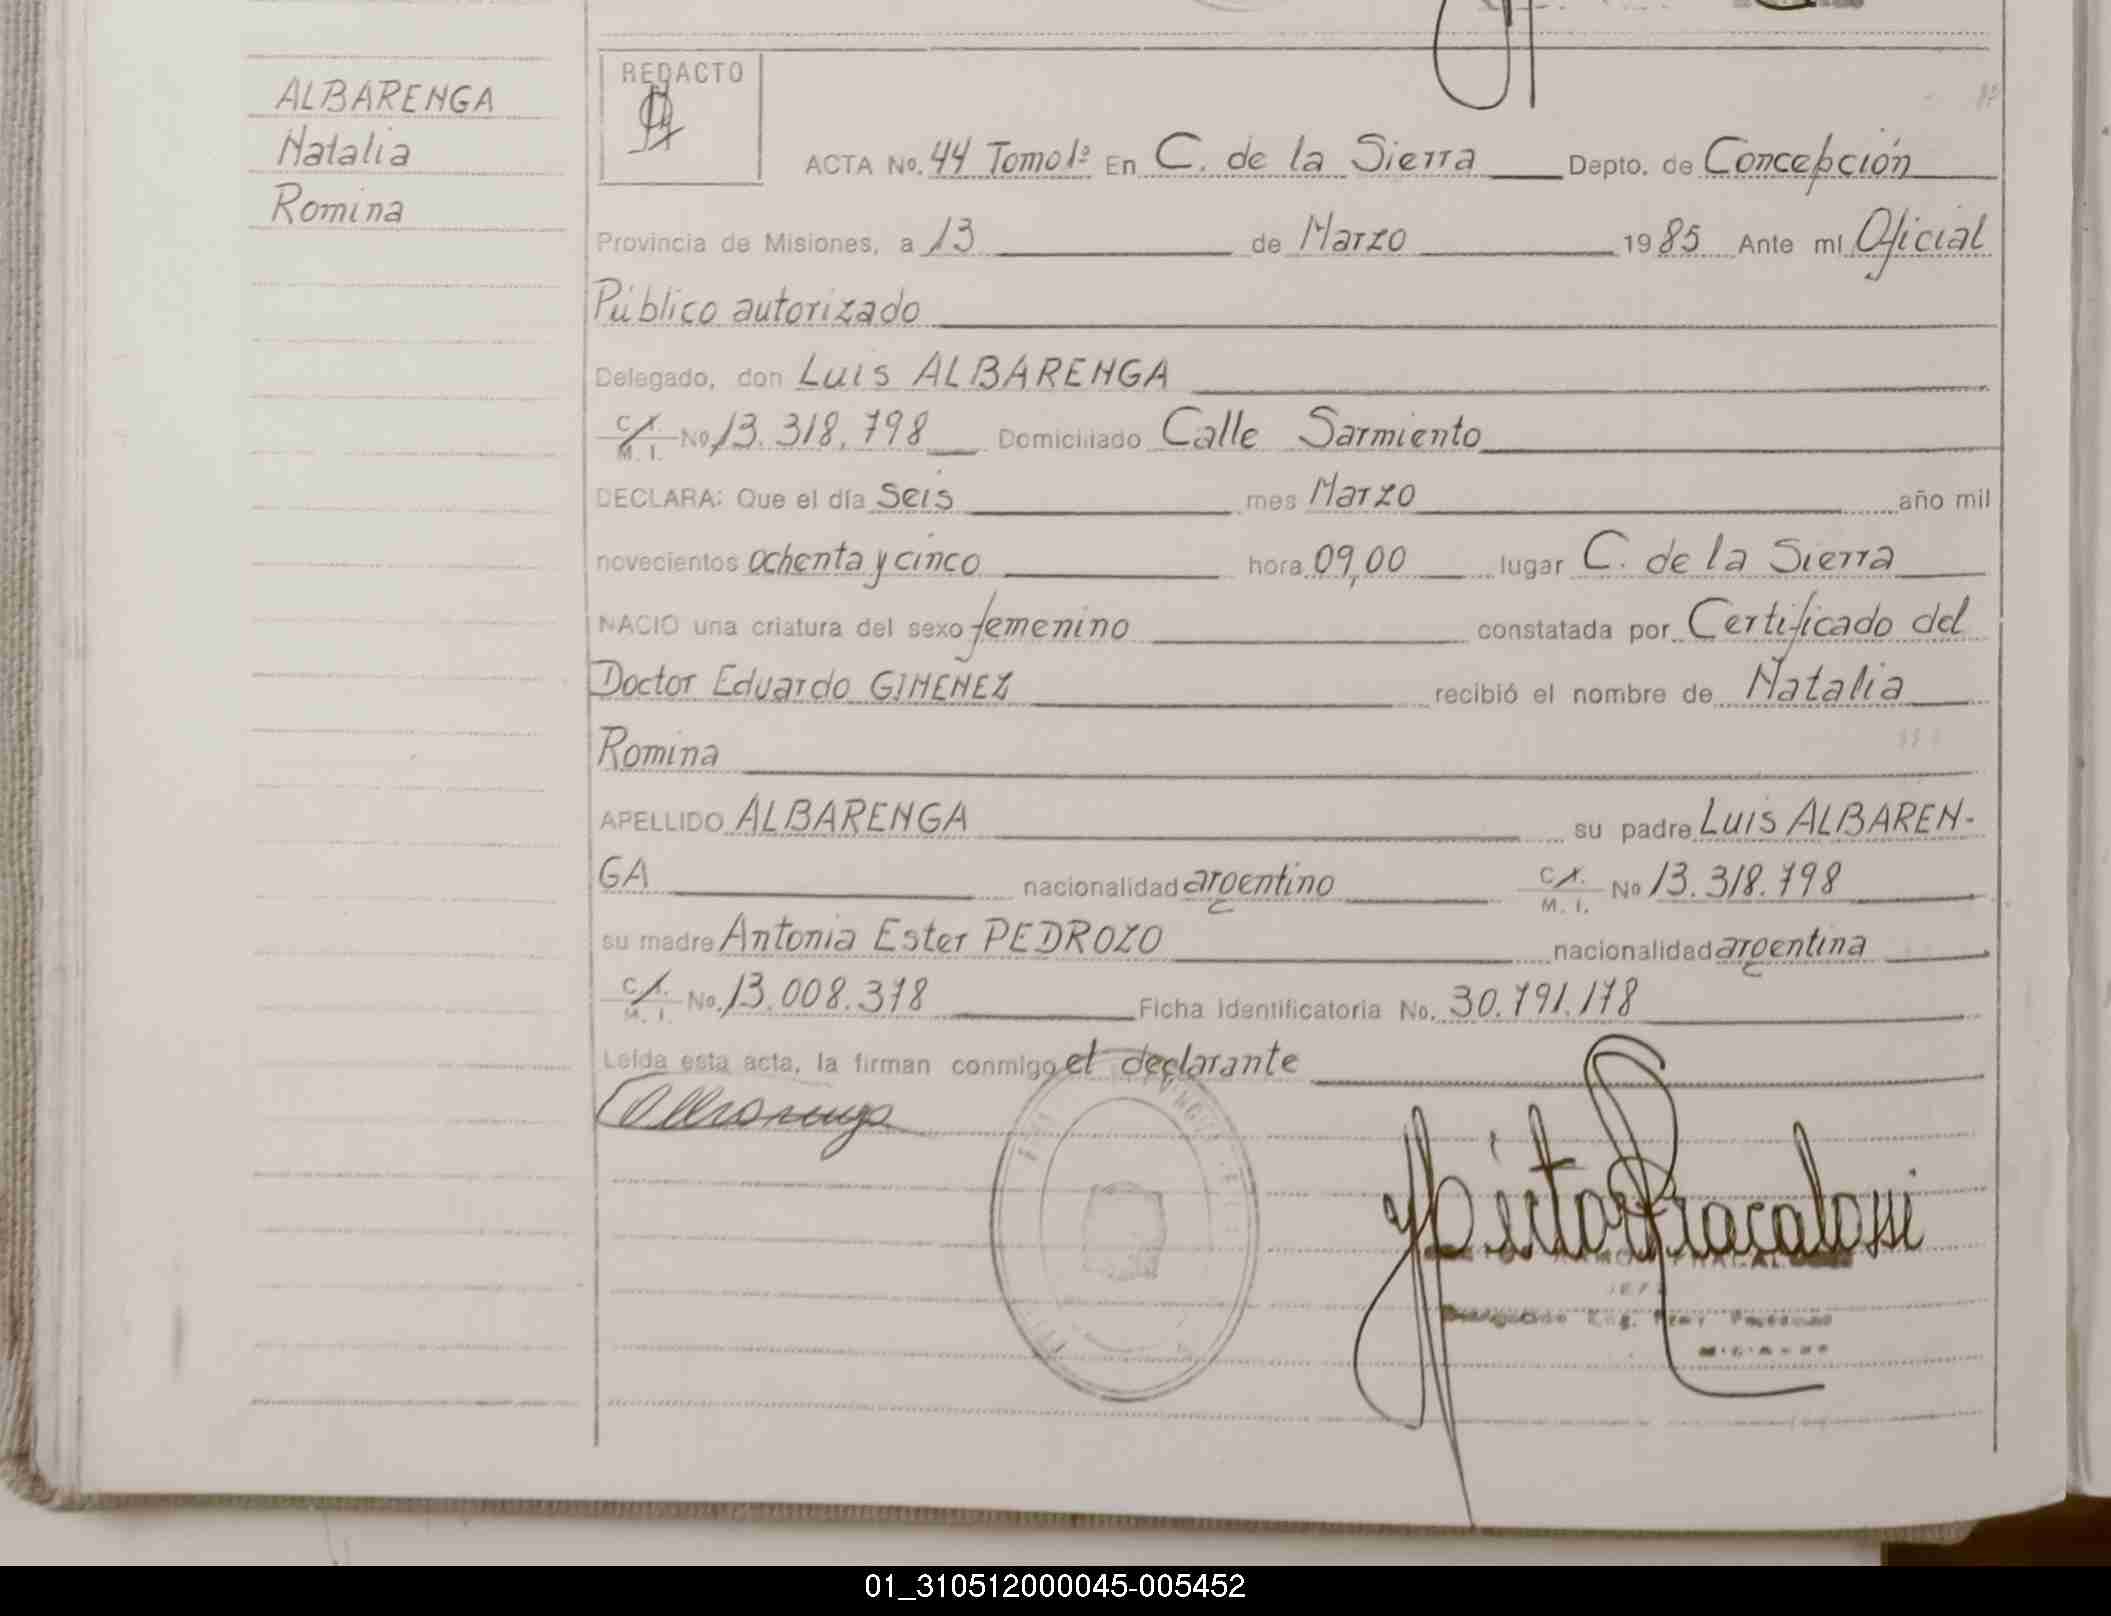 ALBARENGA
Natalia
Romina
REDACTO
ACTA No. 44 Tomo 1º En C. de la Sierra Depto. de Concepción
Provincia de Misiones, a 13 de Marzo 1985 Ante mí Oficial
Público autorizado
Delegado, don Luis ALBARENGA
C. I. M. I. No 13.318.798 Domiciliado Calle Sarmiento
DECLARA: Que el día seis mes Marzo año mil
novecientos ochenta y cinco hora 09,00 lugar C. de la Sierra
NACIO una criatura del sexo femenino constatada por Certificado del
Doctor Eduardo GIMENEZ recibió el nombre de Natalia
Romina
APELLIDO ALBARENGA su padre Luis ALBAREN-
GA nacionalidad argentino C. I. M. I. No 13.318.798
su madre Antonia Ester PEDROZO nacionalidad argentina
C. I. M. I. No. 13.008.378 Ficha Identificatoria No. 30.791.178
Leída esta acta, la firman conmigo el declarante
01_310512000045-005452